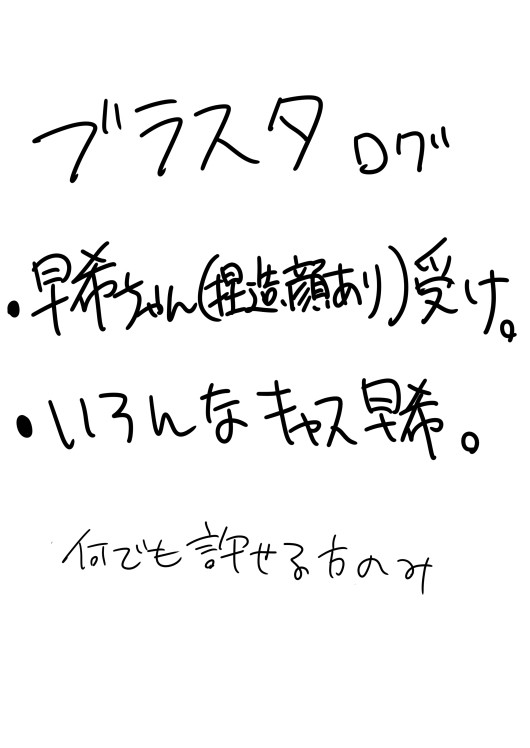 ブラスタログ
・早希ちゃん(捏造顔あり)受け。
・いろんなキャス早希。
何でも許せる方のみ